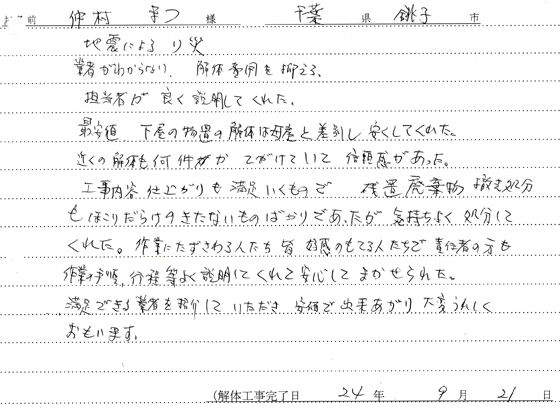 お名前 仲村 まつ 様 千葉 県 銚子 市
地震による り災
業者がわからない、解体費用を抑える、
担当者が良く説明してくれた。
最安値 下屋の物置の解体は
差引し安くしてくれた。
近くの解体も何件か てがけていて 信頼感があった。
工事内容 仕上がりも満足いくもので 残置廃棄物 処分
もほこりだらけのきたないものばかりであったが 気持ちよく 処分して
くれた。作業にたずさわる人たち 皆 好感のもてる人たちで 責任者の方も
作業手順、行程等よく説明してくれて安心して まかせられた。
満足できる業者を紹介して いただき 安価で 出来あがり 大変うれしく
おもいます。
(解体工事完了日 24 年 9 月 21 日